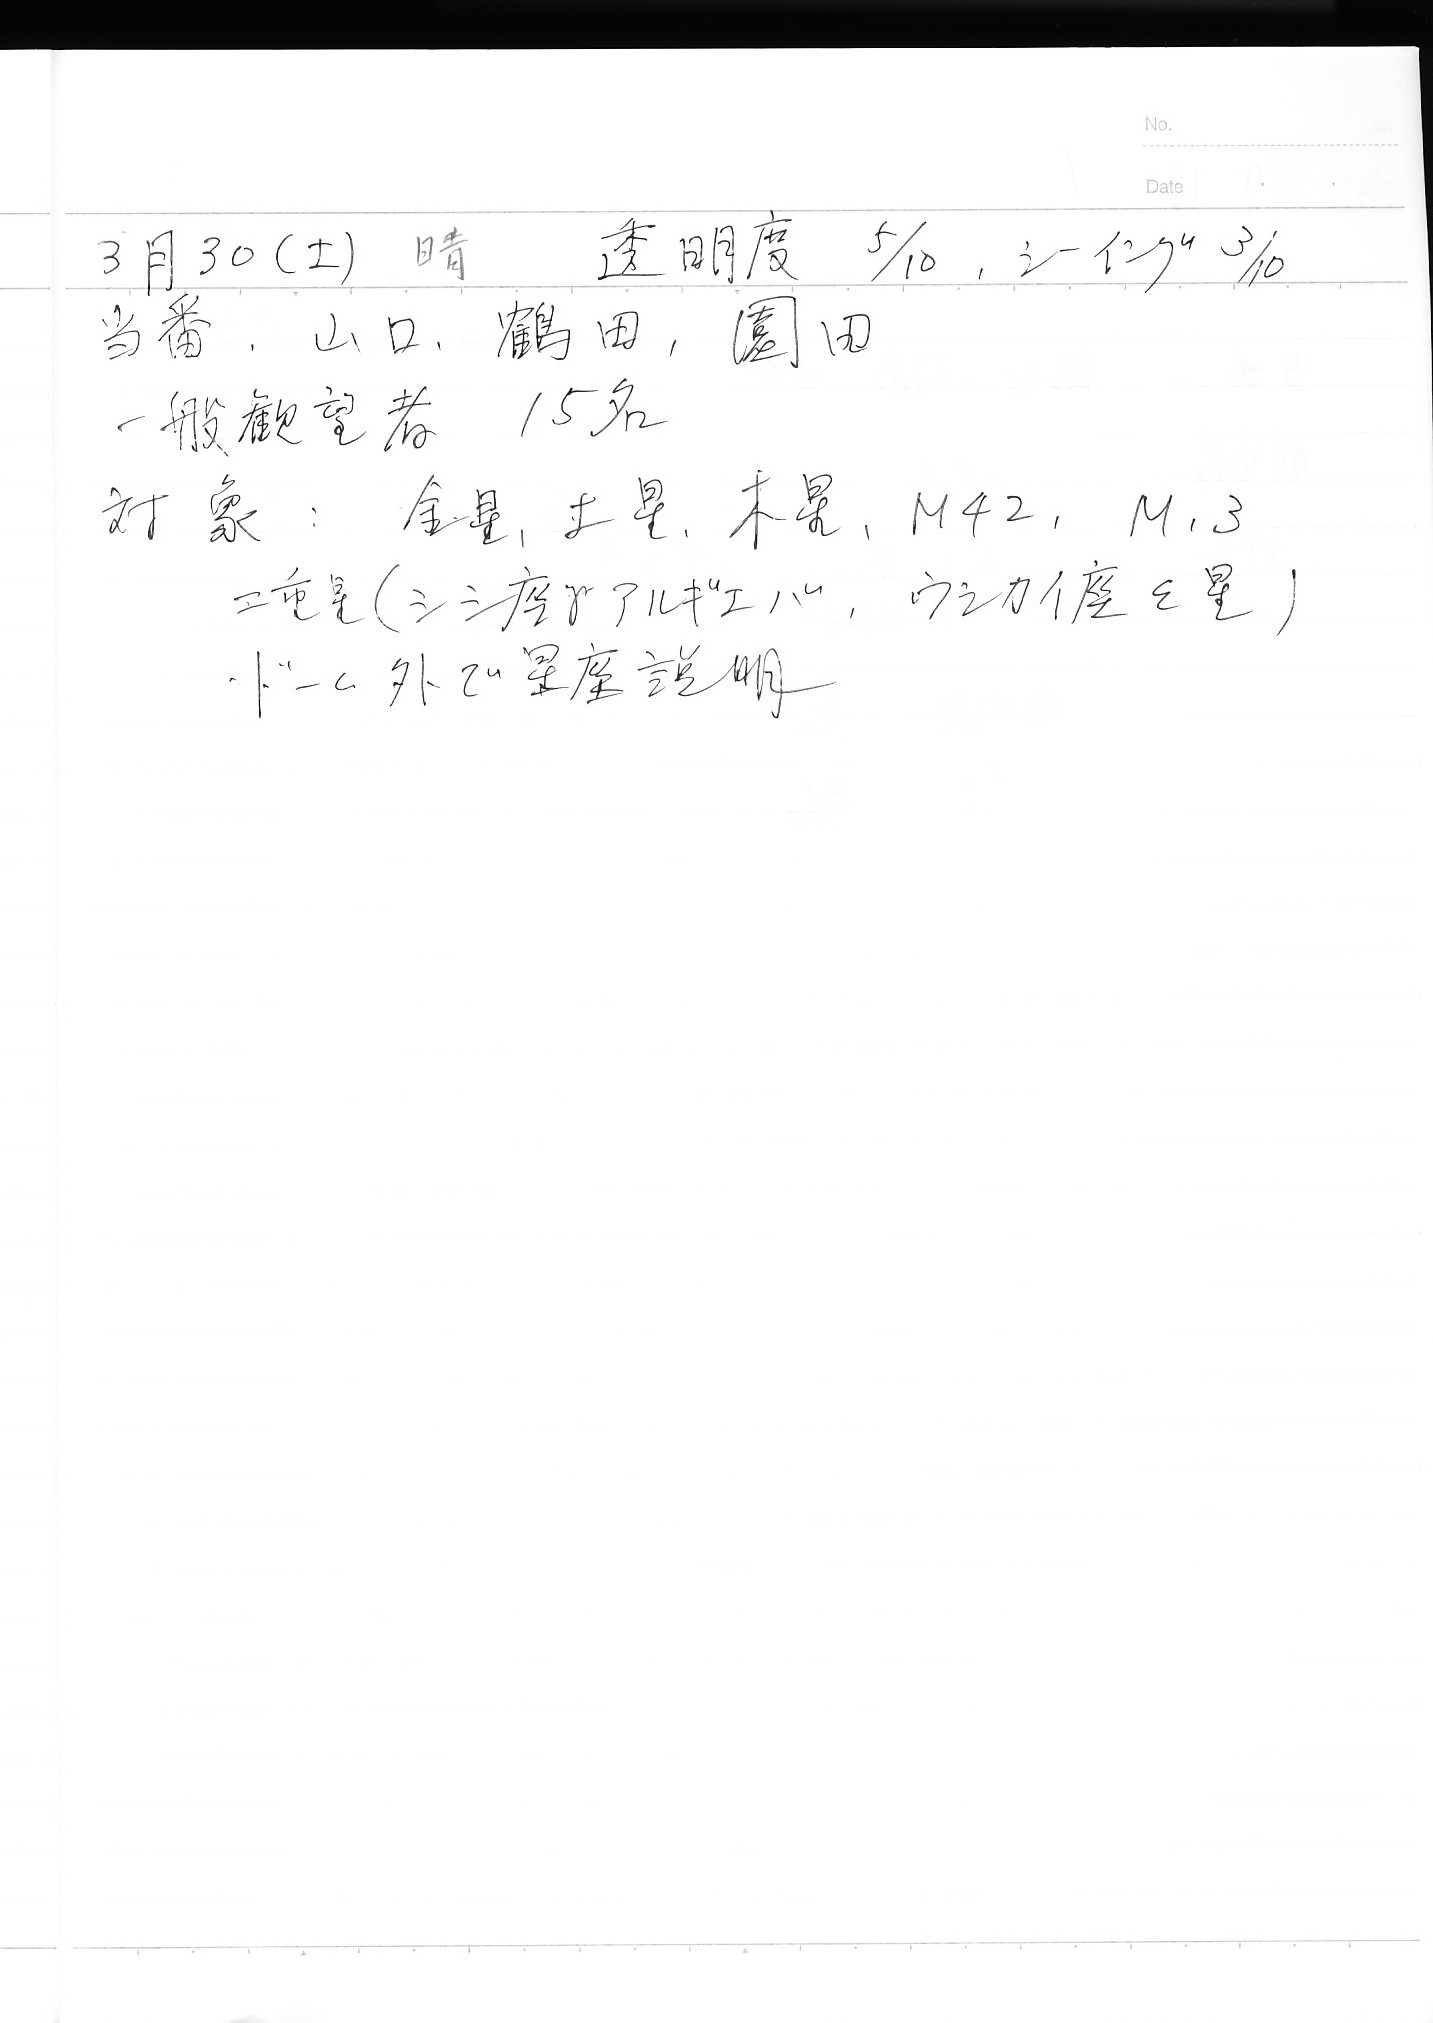 No.
Date
3月30(土) 晴 透明度 5/10, シーイング 3/10
当番. 山口、鶴田, 園田
一般観望者 15名
対象: 金星, 土星, 木星, M42, M,3
二重星(シシ座γアルギエバ, ウシカイ座ε星)
・ドーム外で星座説明